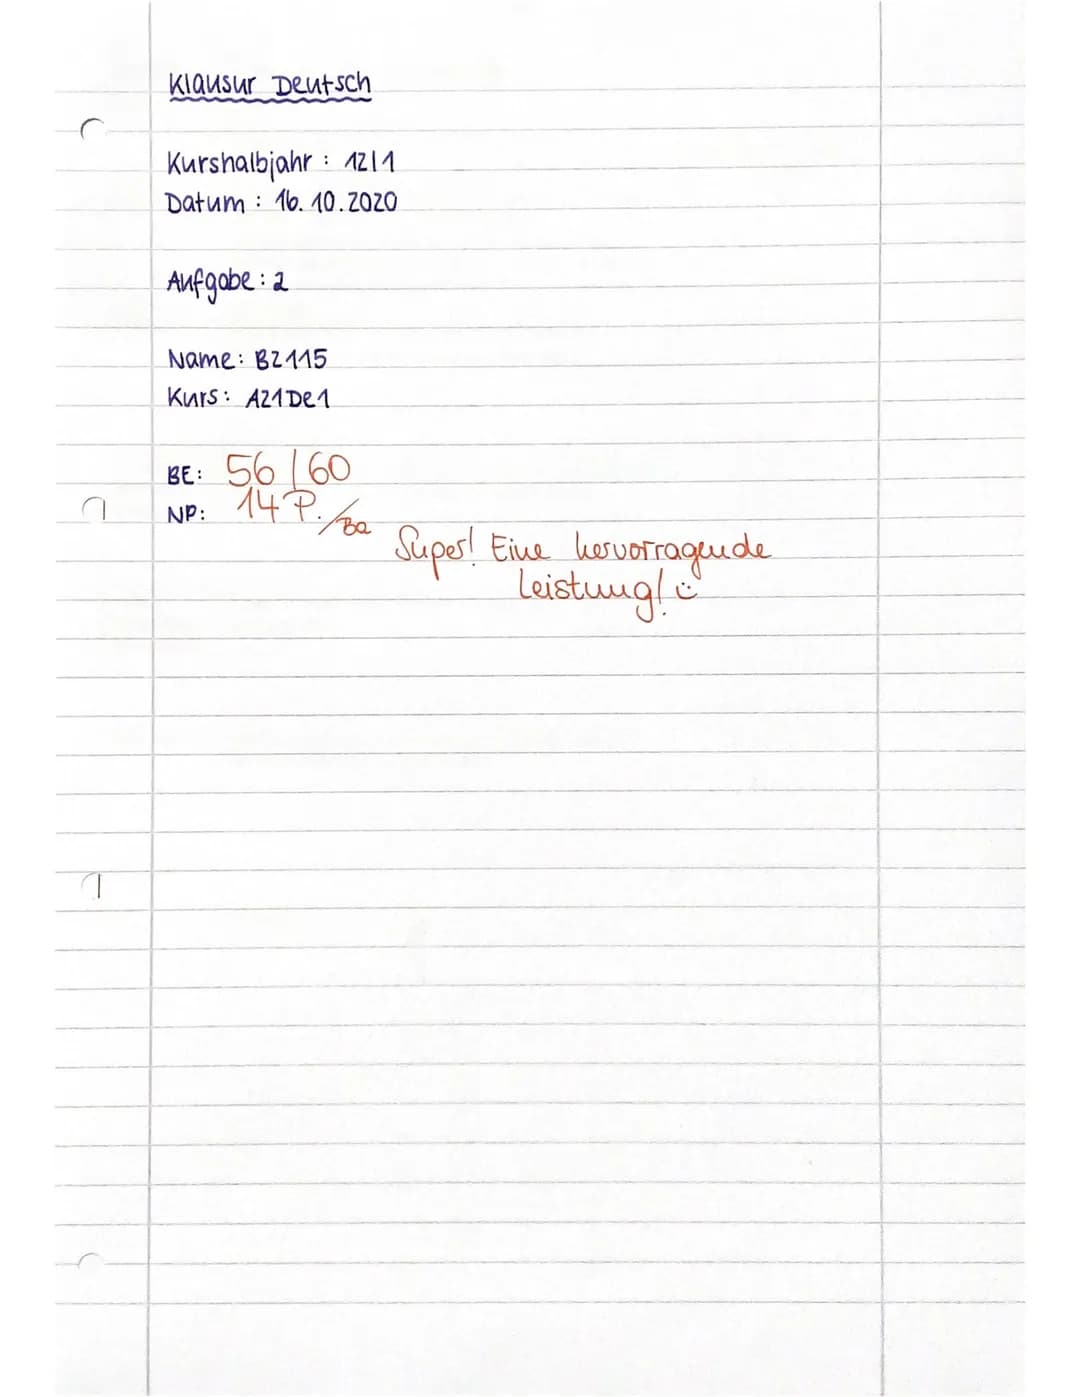 Klausur Deutsch
Kurshalbjahr : 12/1
Datum : 16.10.2020
Aufgabe : 2
Name: BZ115
Kurs: A21De1
BE: 56/60
NP: 14 P. /Ba
Super! Eine hervorragende
Leistung! :)